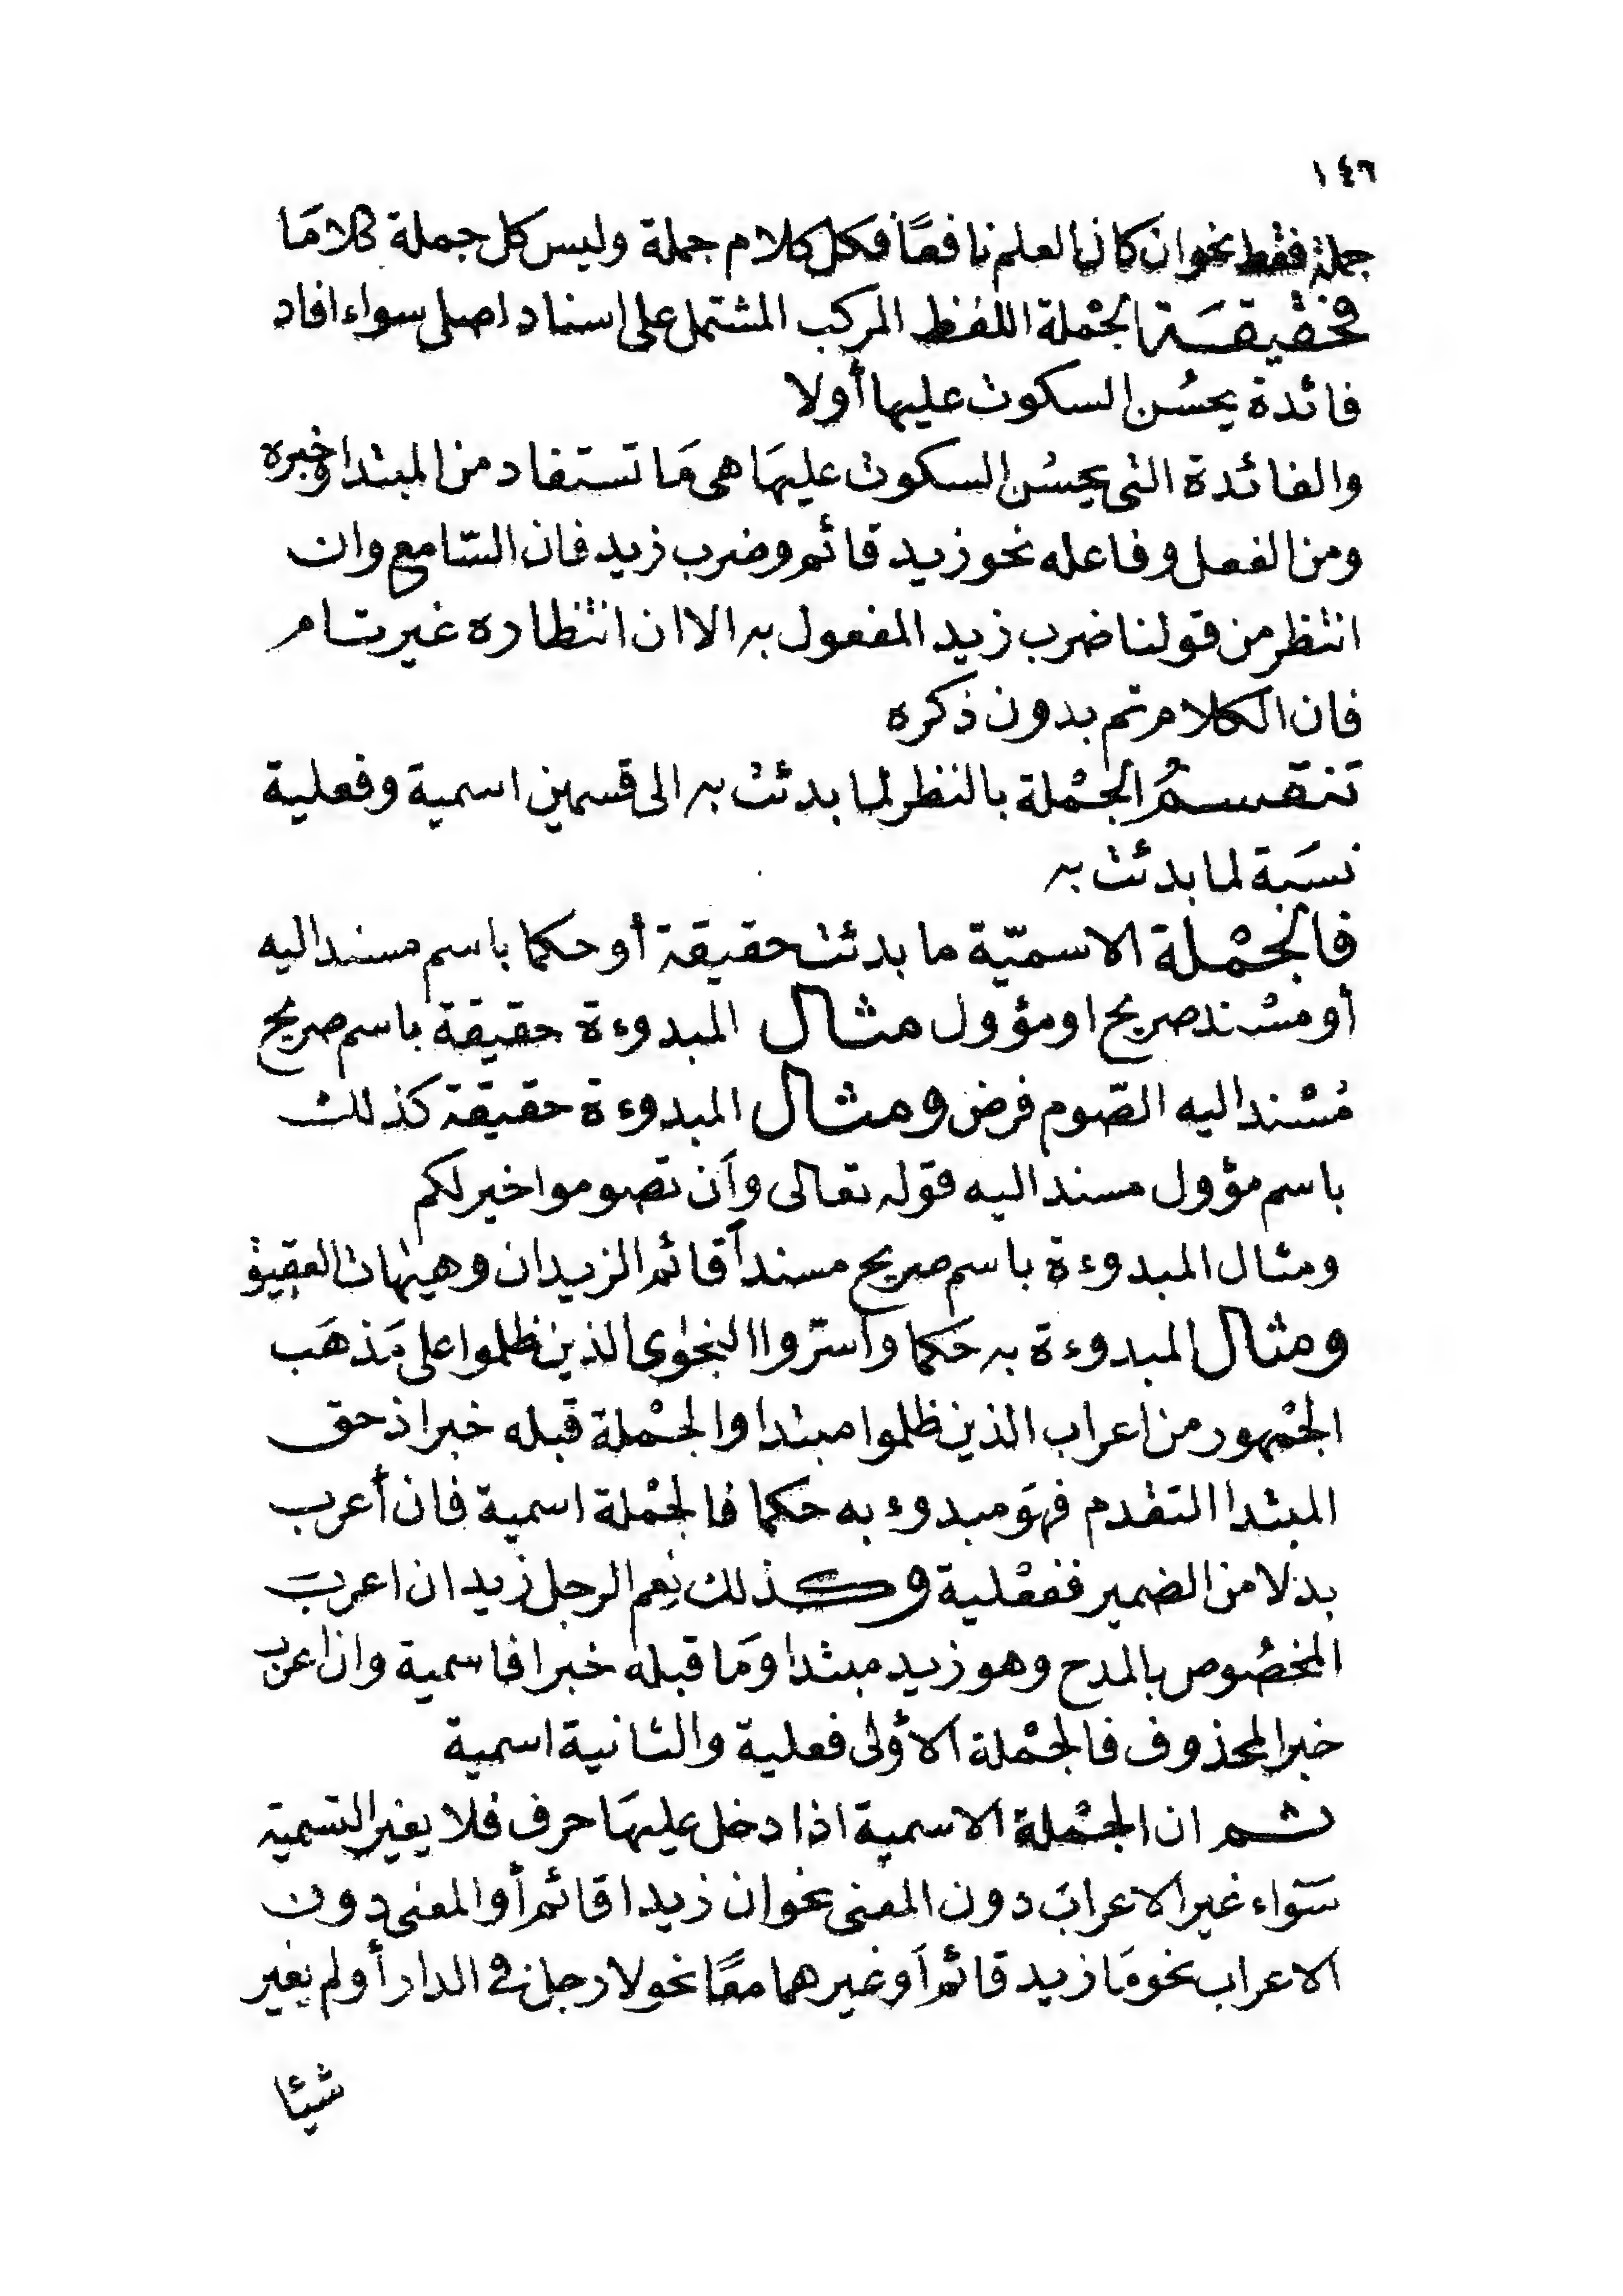 ١٤٦
جملة فقط نحو ان كان العلم نافعًا فكل كلام جملة وليس كل جملة كلامَا
فحقيقَة الجمْلة اللفظ المركب المشتمل على اسناد اصلى سواء افاد
فائدة يحسُن السكوت عليها أولا
والفائدة التى يحسُن السكوت عليهَا هى مَا تستفاد من المبتدا وخبره
ومن الفعل وفاعله نحو زيد قائم وضرب زيد فان السّامع وان
انتظر من قولنا ضرب زيد المفعول به الا ان انتظاره غير تام
فان الكلام تم بدون ذكره
تنقسمُ الجمْلة بالنظر لما بدئت به الى قسمين اسمية وفعلية
نسَبة لما بدئت به
فالجمْلة الاسميّة ما بدئت حقيقة أو حكما باسم مسند اليه
أو مسْند صريح او مؤول مثال المبدوءة حقيقة باسم صريح
مُسْند اليه الصّوم فرض ومثال المبدوءة حقيقة كذلك
باسم مؤول مسند اليه قوله تعالى وأَن تصوموا خير لكم
ومثال المبدوءة باسم صريح مسنداً أقائم الزيدان وهيهات العقيق
ومثال المبدوءة به حَكما وأسرّوا النجوى الذين ظلموا على مَذهَب
الجمْهور من اعراب الذين ظلموا مبتدا والجمْلة قبله خبر اذ حق
المبتدا التقدم فهوَ مبدوء به حكما فالجمْلة اسمية فان أعرب
بدلا من الضمير ففعْلية وكذلك نِعم الرجل زيد ان اعرب
المخصُوص بالمدح وهو زيد مبتدا ومَا قبله خبرا فاسمية وان اعرب
خبر المحذوف فالجمْلة الأولى فعلية والثانية اسمية
ثم ان الجمْلة الاسمية اذا دخل عليهَا حرف فلا يغير التسمية
سَواء غير الاعراب دون المعنى نحو ان زيدا قائم أو المعنى دون
الاعراب نحو مَا زيد قائم أو غيرهما معًا نحو لا رجل فى الدار أو لم يغير
شيئا